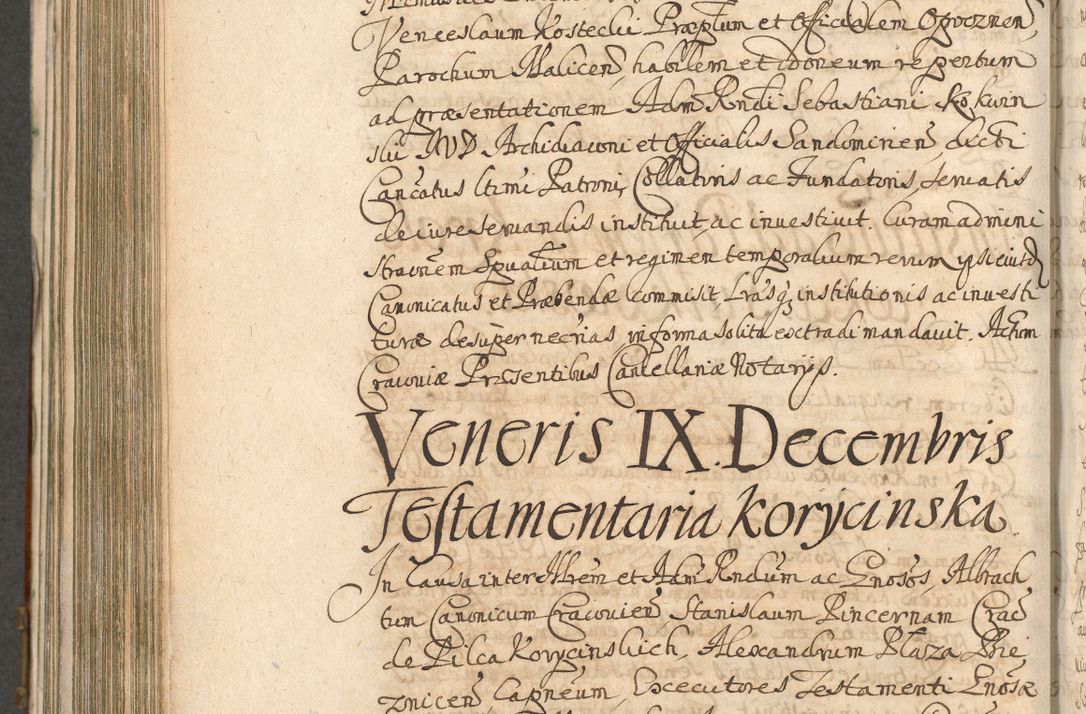 Venceslaum Kostecki Præptum et Officialem Opocznen̄,
Parochum Malicen̄, habilem et idoneum repertum
ad præsentationem Adm̄ Rndi Sebastiani Kokwin
ski JVD Archidiaconi et Officialis Sandomirien̄, dicti
Cancatus ltimi Patroni, Collatoris ac Fundatoris, servatis
de iure servandis instituit ac investivit. Curam admini
straōnem Spualium et regimen temporalium rerum ipsi eiusd
Canonicatus et Præbendæ commisit, Lrasq; institutionis ac investi
turæ desuper necrias in forma solita extradi mandavit. Actum
Cracoviæ Præsentibus Cancellariæ Notarijs.
Veneris IX. Decembris
Testamentaria Korycinska.
In Causa inter Illrēm et Adm̄ Rndum ac Gnosos, Albrach
tum Canonicum Cracovien̄, Stanislaum Pincernam Crac̄
de Pilca Korycinskich, Alexandrum Płaza Bie
znicen̄ Capneum, Executores Testamenti Gnosæ